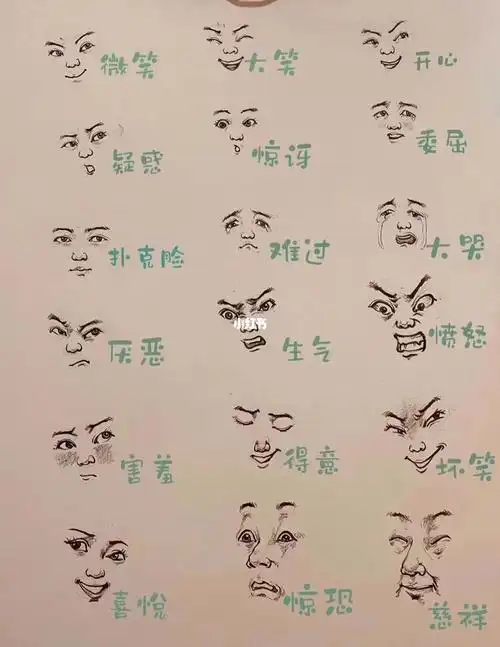 微笑 大笑 开心
疑惑 惊讶 委屈
扑克脸 难过 大哭
小红书
厌恶 生气 愤怒
害羞 得意 坏笑
喜悦 惊恐 慈祥